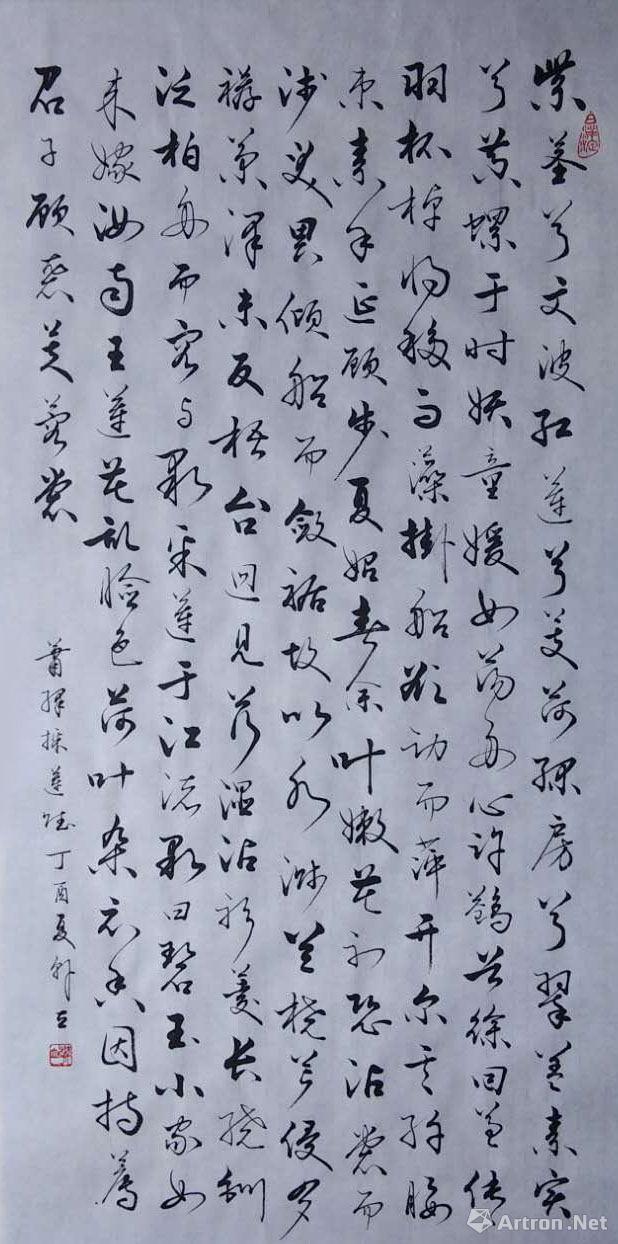 紫茎兮文波红莲兮芰荷绿房兮翠盖素实
兮黄螺于时妖童媛女荡舟心许鹢首徐回兼传
羽杯棹将移而藻掛船欲动而萍开尔其纤腰
束素迁延顾步夏始春余叶嫩花初恐沾裳而
浅笑畏倾船而敛裾故以水溅兰桡芦侵罗
袸菊泽未反梧台迥见荇湿沾衫菱长绕钏
泛柏舟而容与歌采莲于江渚歌曰碧玉小家女
来嫁汝南王莲花乱脸色荷叶杂衣香因持荐
君子愿袭芙蓉裳
萧绎採莲赋丁酉夏
Artron.Net